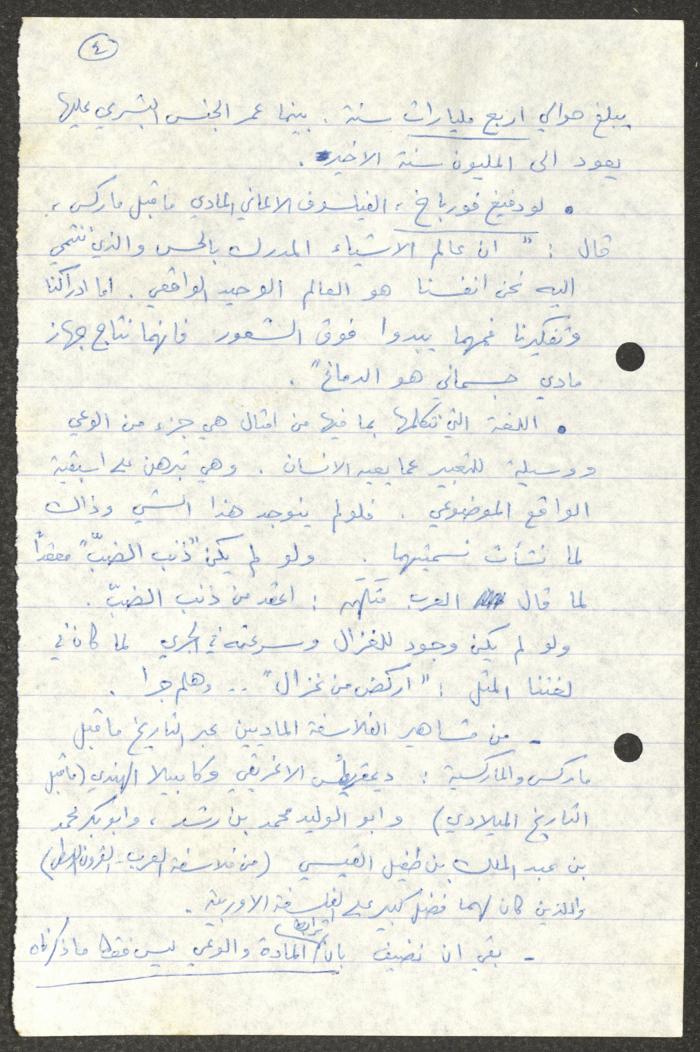 ٤
يبلغ حوالي اربع مليارات سنة . بينما عمر الجنس البشري عليها
يعود الى المليون سنة الاخيرة .
• لودفيغ فورباخ ، الفيلسوف الالماني المادي ما قبل ماركس ،
قال : " ان عالم الاشياء المدرك بالحس والذي ننتمي
اليه نحن انفسنا هو العالم الوحيد الواقعي . اما ادراكنا
وتفكيرنا فمهما يبدوا فوق الشعور فانهما نتاج جهاز
مادي جسماني هو الدماغ " .
• اللغة التي نتكلمها بما فيها من امثال هي جزء من الوعي
ووسيلة للتعبير عما يعيه الانسان . وهي تبرهن على اسبقية
الواقع الموضوعي . فلو لم يتوجد هذا الشي وذاك
لما نشأت تسميتهما . ولو لم يكن " ذنب الضبّ " معقداً
لما قال العرب مثلهم : اعقد من ذنب الضبّ .
ولو لم يكن وجود للغزال وسرعته في الجري لما كان في
لغتنا المثل : " اركض من غزال " .. وهلم جرا .
- من مشاهير الفلاسفة الماديين عبر التاريخ ما قبل
ماركس والماركسية : ديمقريطس الاغريقي وكابيلا الهندي ( ما قبل
التاريخ الميلادي ) وابو الوليد محمد بن رشد ، وابو بكر محمد
بن عبد الملك بن طفيل القيسي ( من فلاسفة العرب - القرون الوسطى )
واللذين كان لهما فضل كبير على الفلسفة الاوربية .
- بقي ان نضيف بان ترابط المادة والوعي ليس فقط ما ذكرناه